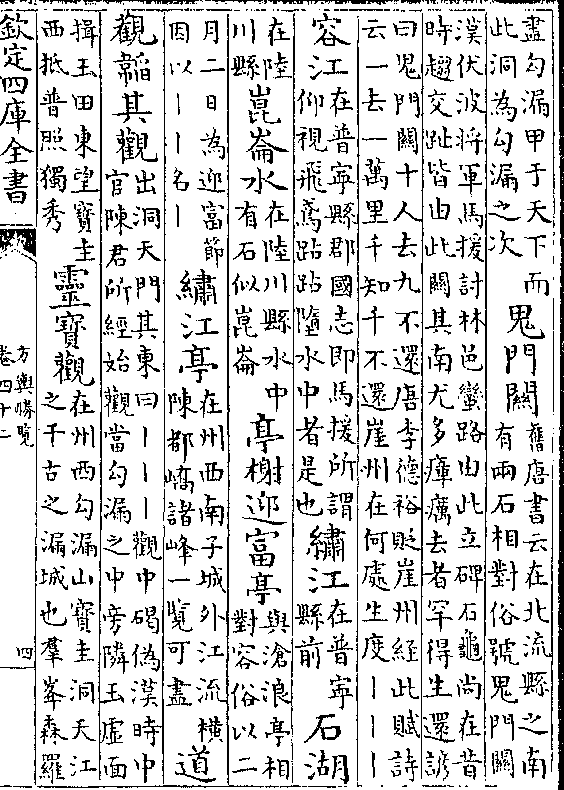 盡勾漏甲于天下而
此洞為勾漏之次
鬼門關
舊唐書云在北流縣之南
有兩石相對俗號鬼門關
漢伏波將軍馬援討林邑蠻路由此立碑石龜尚在昔
時趨交趾皆由此關其南尤多瘴癘去者罕得生還諺
曰鬼門關十人去九不還唐李德裕貶崖州經此賦詩
云一去一萬里千知千不還崖州在何處生度丨丨丨
容江
在普寧縣郡國志即馬援所謂
仰視飛鳶跕跕墮水中者是也
繡江
在普寧
縣前
石湖
在陸
川縣
崑崙水
在陸川縣水中
有石似崑崙
亭榭
迎富亭
與滄浪亭相
對容俗以二
月二日為迎富節
因以丨丨名丨
繡江亭
在州西南子城外江流橫
陳都嶠諸峰一覽可盡
道
觀
韜其觀
出洞天門其東曰丨丨丨觀中碣偽漢時中
官陳君所經始觀當勾漏之中旁隣玉虛面
揖玉田東望寶圭
西抵普照獨秀
靈寶觀
在州西勾漏山寶圭洞天江
之千古之漏城也羣峯森羅
欽定四庫全書
方輿勝覽
卷四十二
四